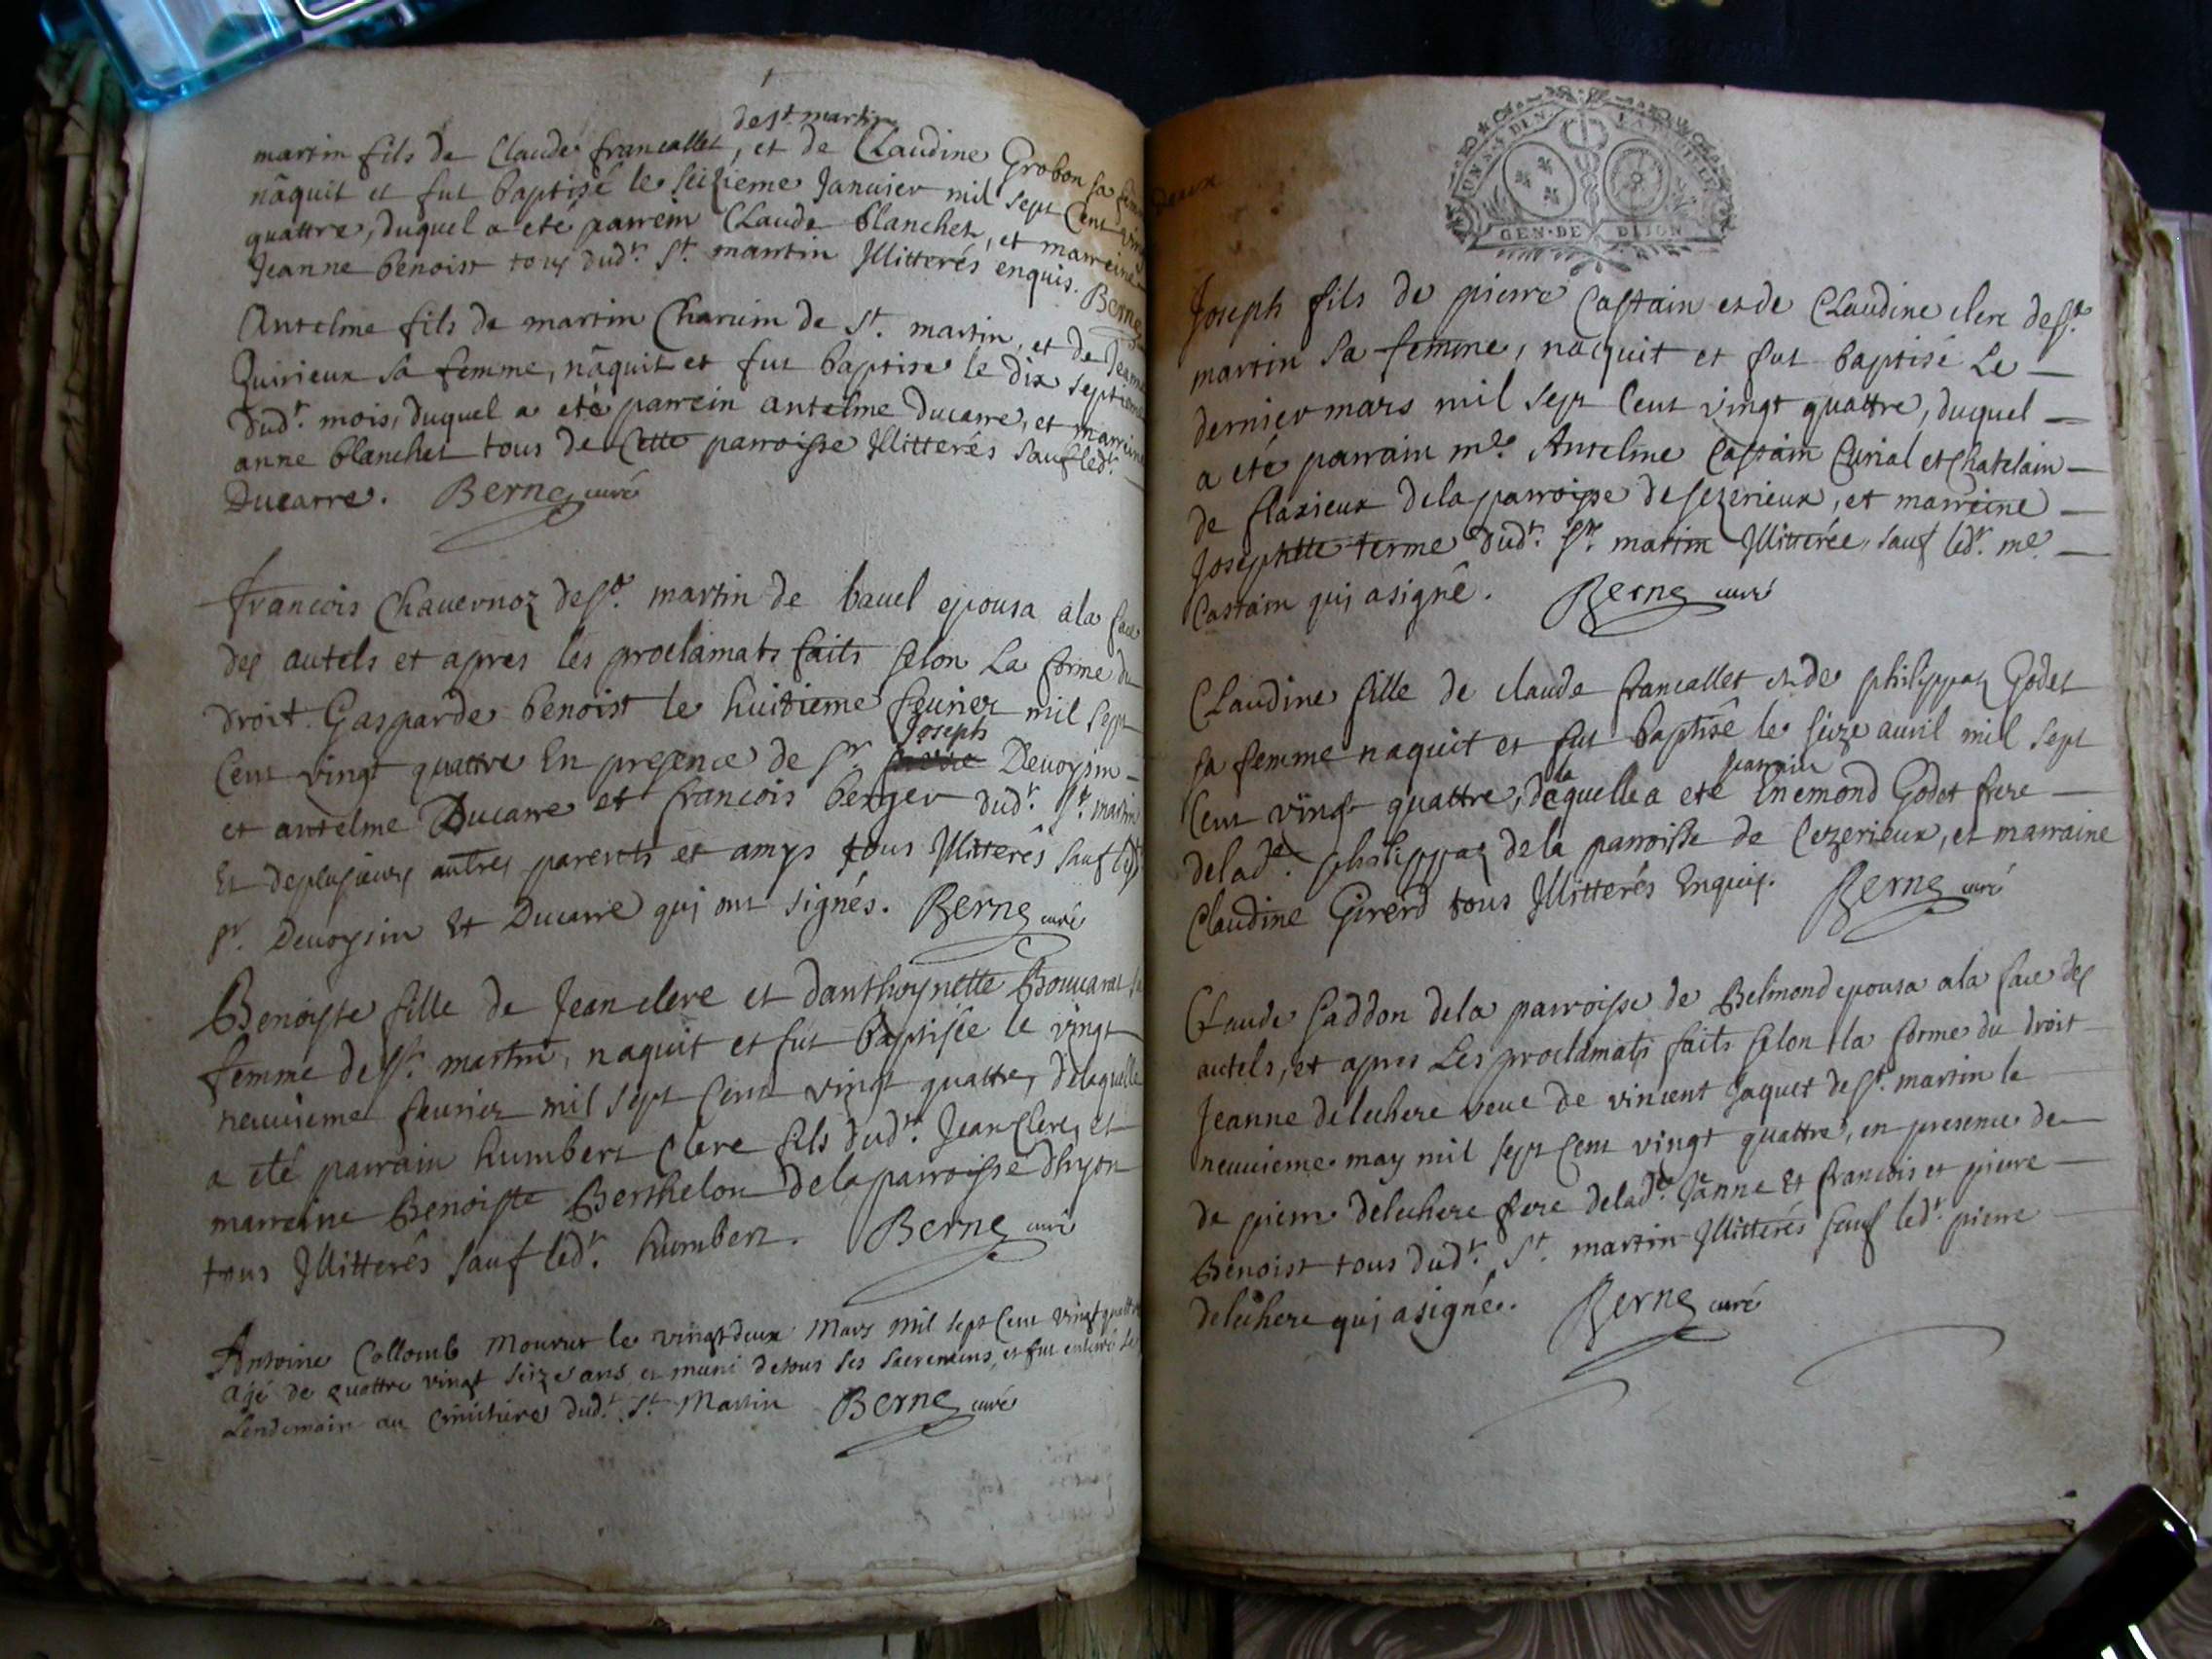 de st. martin
martin fils de Claude francallet, et de Claudine Grobon sa
nâquit et fut baptisé le seizieme Janvier mil sept Cent
quattre, duquel a eté parrein Claude blanchet, et marreine
Jeanne benoist tous dud.t St. martin Illitterés enquis. Berne
Antelme fils de martin Charum de St. martin, et de Jeanne
Quirieux sa femme, nâquit et fut baptise le dix septieme
dud.t mois, duquel a eté parrein antelme ducarre, et marreine
anne blanchet tous de Cette parroisse Illitterés sauf led.t
Ducarre. Berne curé
françois Chavernoz de st. martin de bavel epousa a la face
des autels et apres les proclamats faits selon La forme du
droit Gasparde benoist le huitieme fevrier mil sept
Joseph
Cent vingt quattre En presence de sr. Devoysin
et antelme Ducarre et françois berger dud.t St. martin
Et de plusieurs autres parents et amys tous Illitterés sauf
sr. Devoysin Et Ducarre qui ont signés. Berne curé
Benoiste fille de Jean clere et danthoynette Bouvarat
femme de st. martin, naquit et fut baptisée le vingt
neuvieme fevrier mil sept Cent vingt quattre, delaquelle
a eté parrain humbert Clere fils dud.t Jean Clere, et
marreine Benoiste Berthelon de la parroisse dhyon
tous Illitterés sauf led.t humbert. Berne curé
Antoine Collomb mourut le vingtdeux Mars mil sept Cent vingt quattre
agé de quattre vingt seize ans, et muni detous ses sacremens, et fut enterré le
Lendemain au Cimitiere dud.t St. Martin Berne curé
deux
GEN. DE DIJON
Joseph fils de pierre Castain et de Claudine clere de st.
martin sa femme, nâquit et fut baptisé Le
dernier mars mil sept Cent vingt quattre, duquel
a eté parrain me. Antelme Castain Curial et Chatelain
de flaxieux dela parroisse de sezerieux, et marreine
Josephtte terme dud.t St. martin Illitterée, sauf led.t me
Castain qui a signé. Berne curé
Claudine fille de claude francallet et de philippaz Godet
sa femme naquit et fut baptisé le sixe avril mil sept
la parrain
Cent vingt quattre, dequelle a eté Enemond Godet frere
delad.e philippaz de la parroisse de Cezerieux, et marraine
Claudine Girerd tous Illitterés Enquis. Berne curé
Claude Gaddon dela parroisse de Belmond epousa a la face des
autels, et apres Les proclamats faits selon la forme du droit
Jeanne delechere veue de vincent Jaquet de st. martin le
neuvieme may mil sept Cent vingt quattre, en presence de
de pierre delechere frere delad.e Jânne Et francois et pierre
Benoist tous dud.t St. martin Illitterés sauf led.t pierre
delechere qui a signé. Berne curé